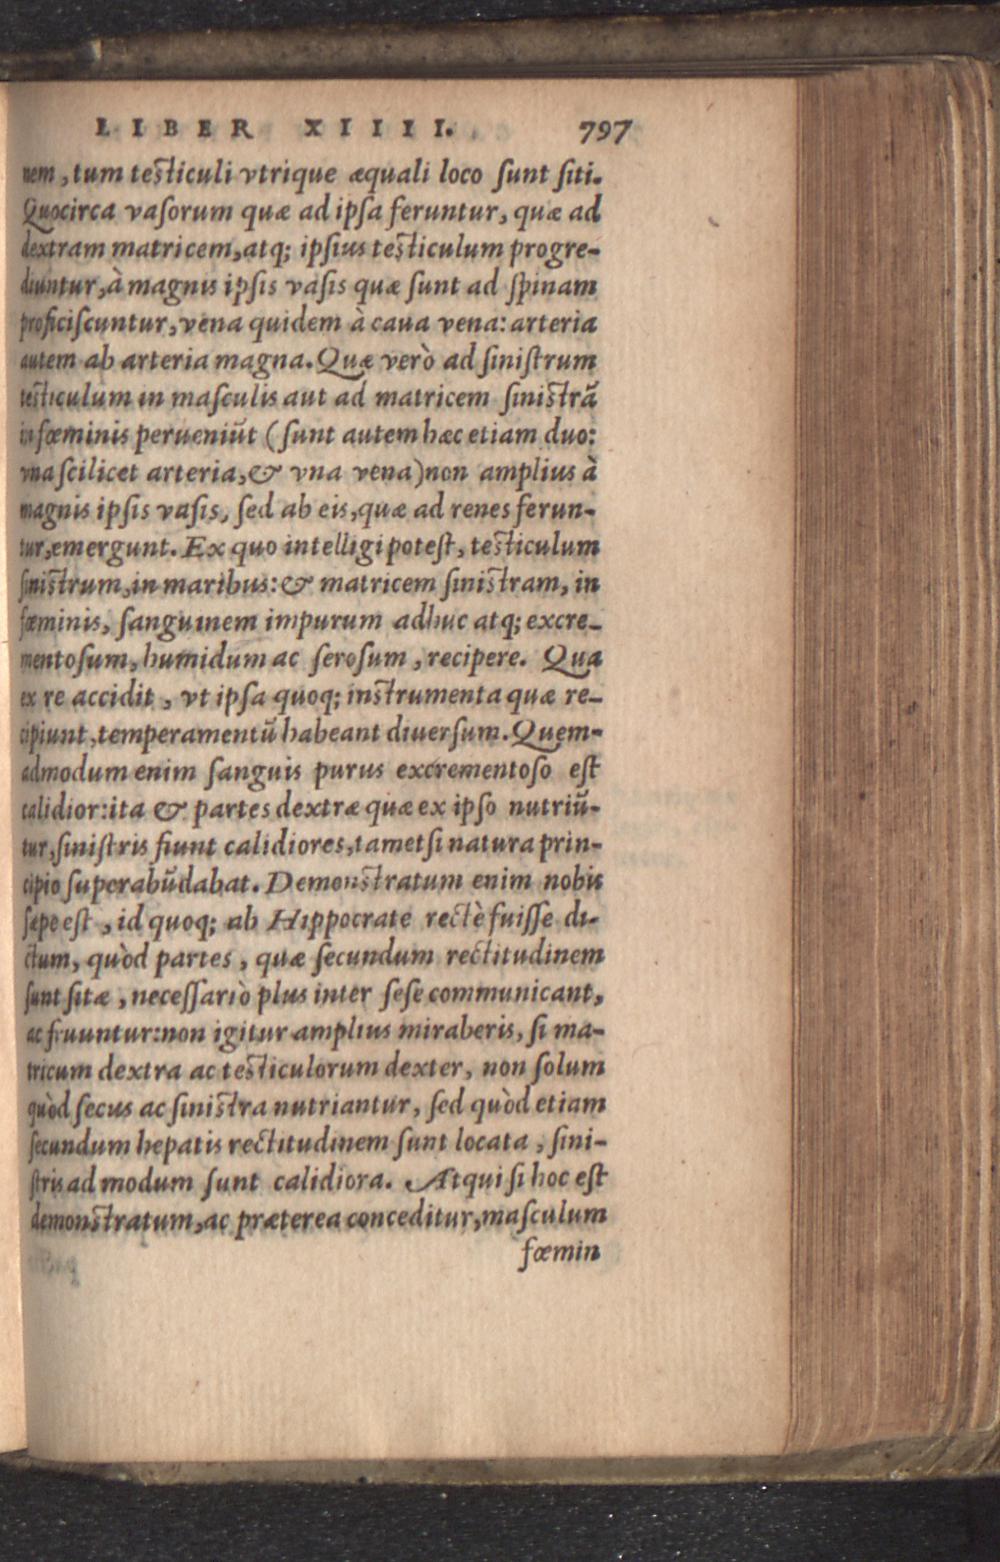 LIBER XIIII. 797
nem, tum testiculi vtrique æquali loco sunt siti.
Quocirca vasorum quæ ad ipsa feruntur, quæ ad
dextram matricem, atq; ipsius testiculum progre-
diuntur, à magnis ipsis vasis quæ sunt ad spinam
proficiscuntur, vena quidem à caua vena: arteria
autem ab arteria magna. Quæ verò ad sinistrum
testiculum in masculis aut ad matricem sinistrã
in fœminis perueniũt (sunt autem hæc etiam duo:
vna scilicet arteria, & vna vena) non amplius à
magnis ipsis vasis, sed ab eis, quæ ad renes ferun-
tur, emergunt. Ex quo intelligi potest, testiculum
sinistrum, in maribus: & matricem sinistram, in
fœminis, sanguinem impurum adhuc atq; excre-
mentosum, humidum ac serosum, recipere. Qua
ex re accidit, vt ipsa quoq; instrumenta quæ re-
cipiunt, temperamentũ habeant diuersum. Quem-
admodum enim sanguis purus excrementoso est
calidior: ita & partes dextræ quæ ex ipso nutriũ-
tur, sinistris fiunt calidiores, tametsi natura prin-
cipio superabũdabat. Demonstratum enim nobis
sæpe est, id quoq; ab Hippocrate rectè fuisse di-
ctum, quòd partes, quæ secundum rectitudinem
sunt sitæ, necessariò plus inter sese communicant,
ac fruuntur: non igitur amplius miraberis, si ma-
tricum dextra ac testiculorum dexter, non solum
quòd secus ac sinistra nutriantur, sed quòd etiam
secundum hepatis rectitudinem sunt locata, sini-
stris admodum sunt calidiora. Atqui si hoc est
demonstratum, ac præterea conceditur, masculum
fœmin